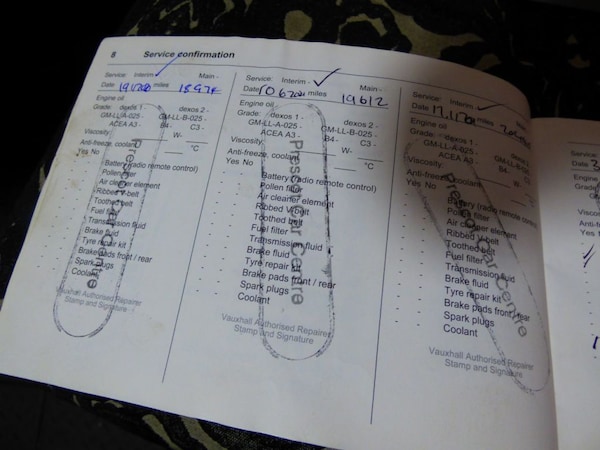 8 Service confirmation
Service: Interim - Main -
Date miles
Engine oil
Grade: dexos 1 - dexos 2 -
GM-LL-A-025 - GM-LL-B-025 -
ACEA A3 - B4- C3 -
Viscosity: W-
Anti-freeze, coolant °C
Yes No
Battery (radio remote control)
Pollen filter
Air cleaner element
Ribbed V-belt
Toothed belt
Fuel filter
Transmission fluid
Brake fluid
Tyre repair kit
Brake pads front / rear
Spark plugs
Coolant
Vauxhall Authorised Repairer
Stamp and Signature
Service: Interim - Main -
Date miles 19612
Engine oil
Grade: dexos 1 - dexos 2 -
GM-LL-A-025 - GM-LL-B-025 -
ACEA A3 - B4- C3 -
Viscosity: W-
Anti-freeze, coolant °C
Yes No
Battery (radio remote control)
Pollen filter
Air cleaner element
Ribbed V-belt
Toothed belt
Fuel filter
Transmission fluid
Brake fluid
Tyre repair kit
Brake pads front / rear
Spark plugs
Coolant
Vauxhall Authorised Repairer
Stamp and Signature
Centre
Service: Interim - Main -
Date miles
Engine oil
Grade: dexos 1 - dexos 2 -
GM-LL-A-025 - GM-LL-B-025 -
ACEA A3 - B4- C3 -
Viscosity: W-
Anti-freeze, coolant °C
Yes No
Battery (radio remote control)
Pollen filter
Air cleaner element
Ribbed V-belt
Toothed belt
Fuel filter
Transmission fluid
Brake fluid
Tyre repair kit
Brake pads front / rear
Spark plugs
Coolant
Vauxhall Authorised Repairer
Stamp and Signature
Centre